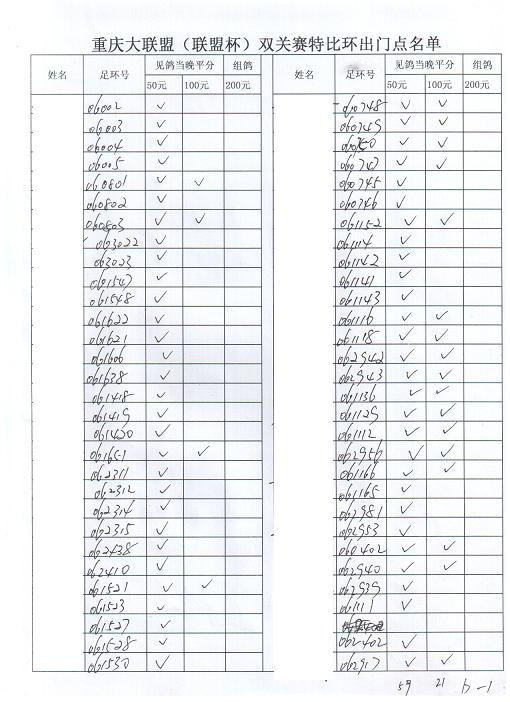 重庆大联盟（联盟杯）双关赛特比环出门点名单
姓名 足环号 见鸽当晚平分 组鸽 姓名 足环号 见鸽当晚平分 组鸽
50元 100元 200元 50元 100元 200元
06002 ✓ 060748 ✓ ✓
06003 ✓ 060749 ✓ ✓
06004 ✓ 060750 ✓ ✓
06005 ✓ 060747 ✓ ✓
060801 ✓ ✓ 060745 ✓
060802 ✓ 060746 ✓
060803 ✓ ✓ 061152 ✓ ✓
063022 ✓ 061114 ✓
063023 ✓ 061142 ✓
061547 ✓ 061141 ✓
061548 ✓ 061143 ✓
061622 ✓ 061116 ✓ ✓
061621 ✓ 061118 ✓ ✓
061606 ✓ 062942 ✓ ✓
061638 ✓ 062943 ✓ ✓
061418 ✓ 061136 ✓ ✓
061419 ✓ 061129 ✓ ✓
061420 ✓ 061112 ✓ ✓
061651 ✓ ✓ 062956 ✓ ✓
062311 ✓ 061166 ✓ ✓
062312 ✓ 061165 ✓
062314 ✓ 062981 ✓
062315 ✓ 062953 ✓
062438 ✓ 060402 ✓ ✓
062410 ✓ 062940 ✓ ✓
061521 ✓ ✓ 062939 ✓
061523 ✓ 061111 ✓
061527 ✓
061528 ✓ 062402 ✓
061530 ✓ 062917 ✓ ✓
59 21 6-1